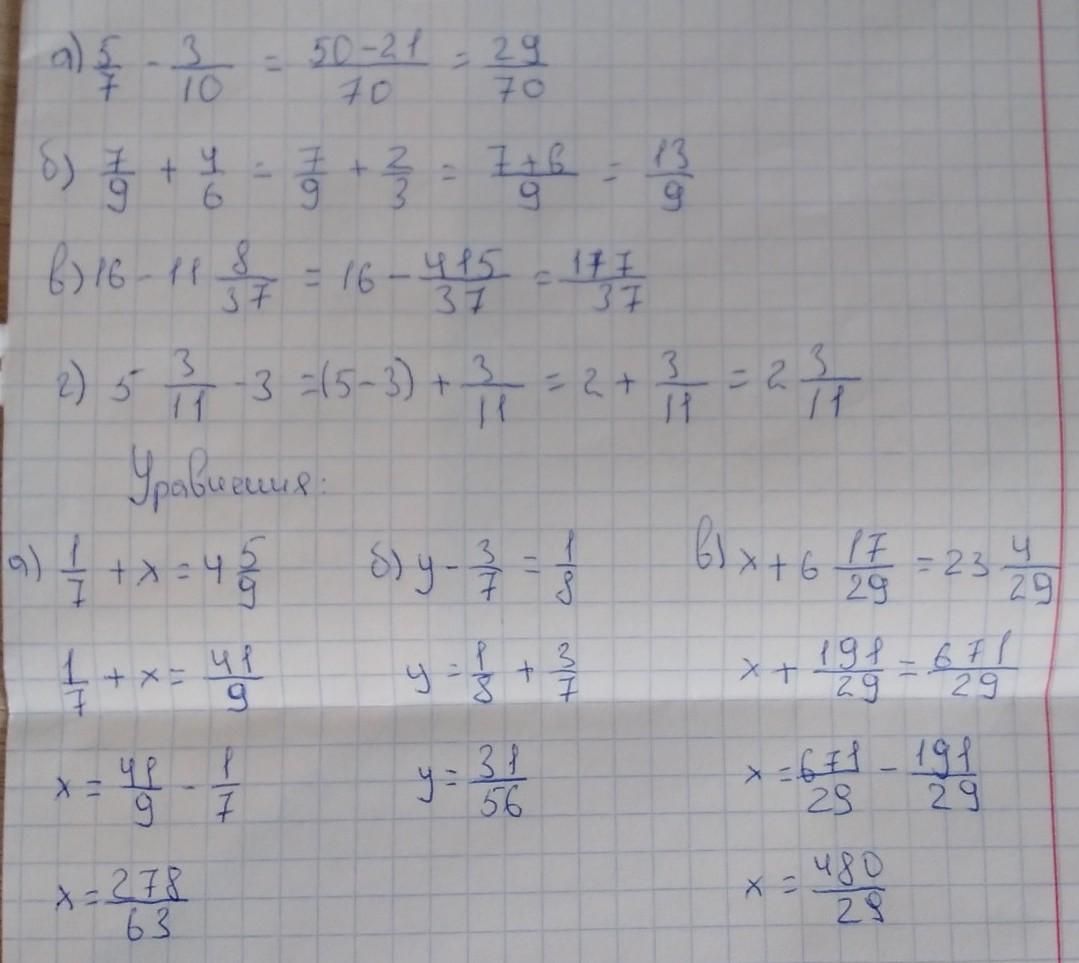 а) 5/7 - 3/10 = 50-21/70 = 29/70
б) 7/9 + 4/6 = 7/9 + 2/3 = 7+6/9 = 13/9
в) 16 - 11 8/37 = 16 - 415/37 = 177/37
г) 5 3/11 - 3 = (5-3) + 3/11 = 2 + 3/11 = 2 3/11
Уравнения:
а) 1/7 + x = 4 5/9
1/7 + x = 41/9
x = 41/9 - 1/7
x = 278/63
б) y - 3/7 = 1/8
y = 1/8 + 3/7
y = 31/56
в) x + 6 17/29 = 23 4/29
x + 191/29 = 671/29
x = 671/29 - 191/29
x = 480/29